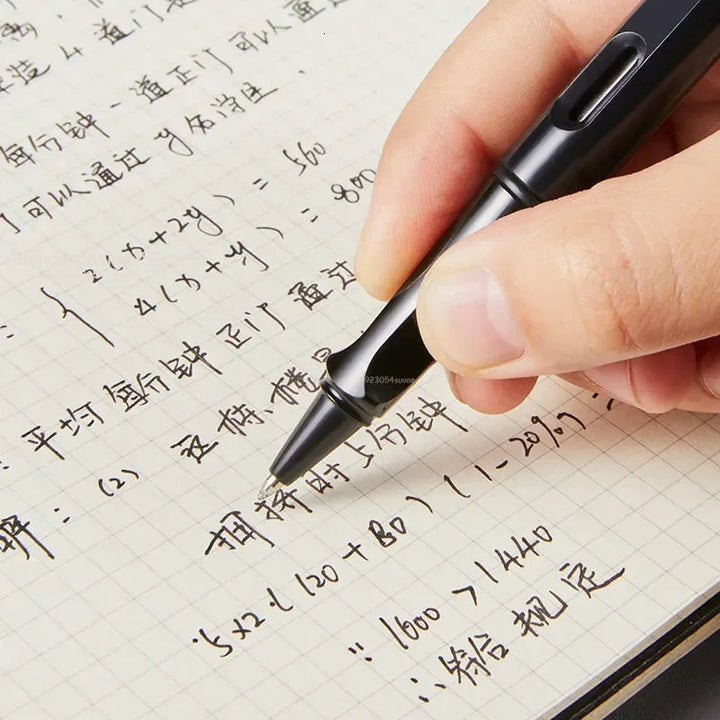 建造4道门
每分钟一道正门可以通过
门可以通过y名学生.
2(x+2y)=560
4(x+y)=800
: 平均每分钟正门通过
解: (2) 这栋楼
拥挤时5分钟
5×2×(120+80)(1-20%)=
∵ 1600>1440
∴ 符合规定
923054suvoe